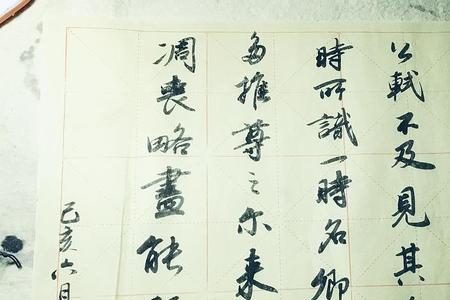 公軾不及見其
時所識一時名卿
多推尊之尔来
凋喪略盡能
己亥六月